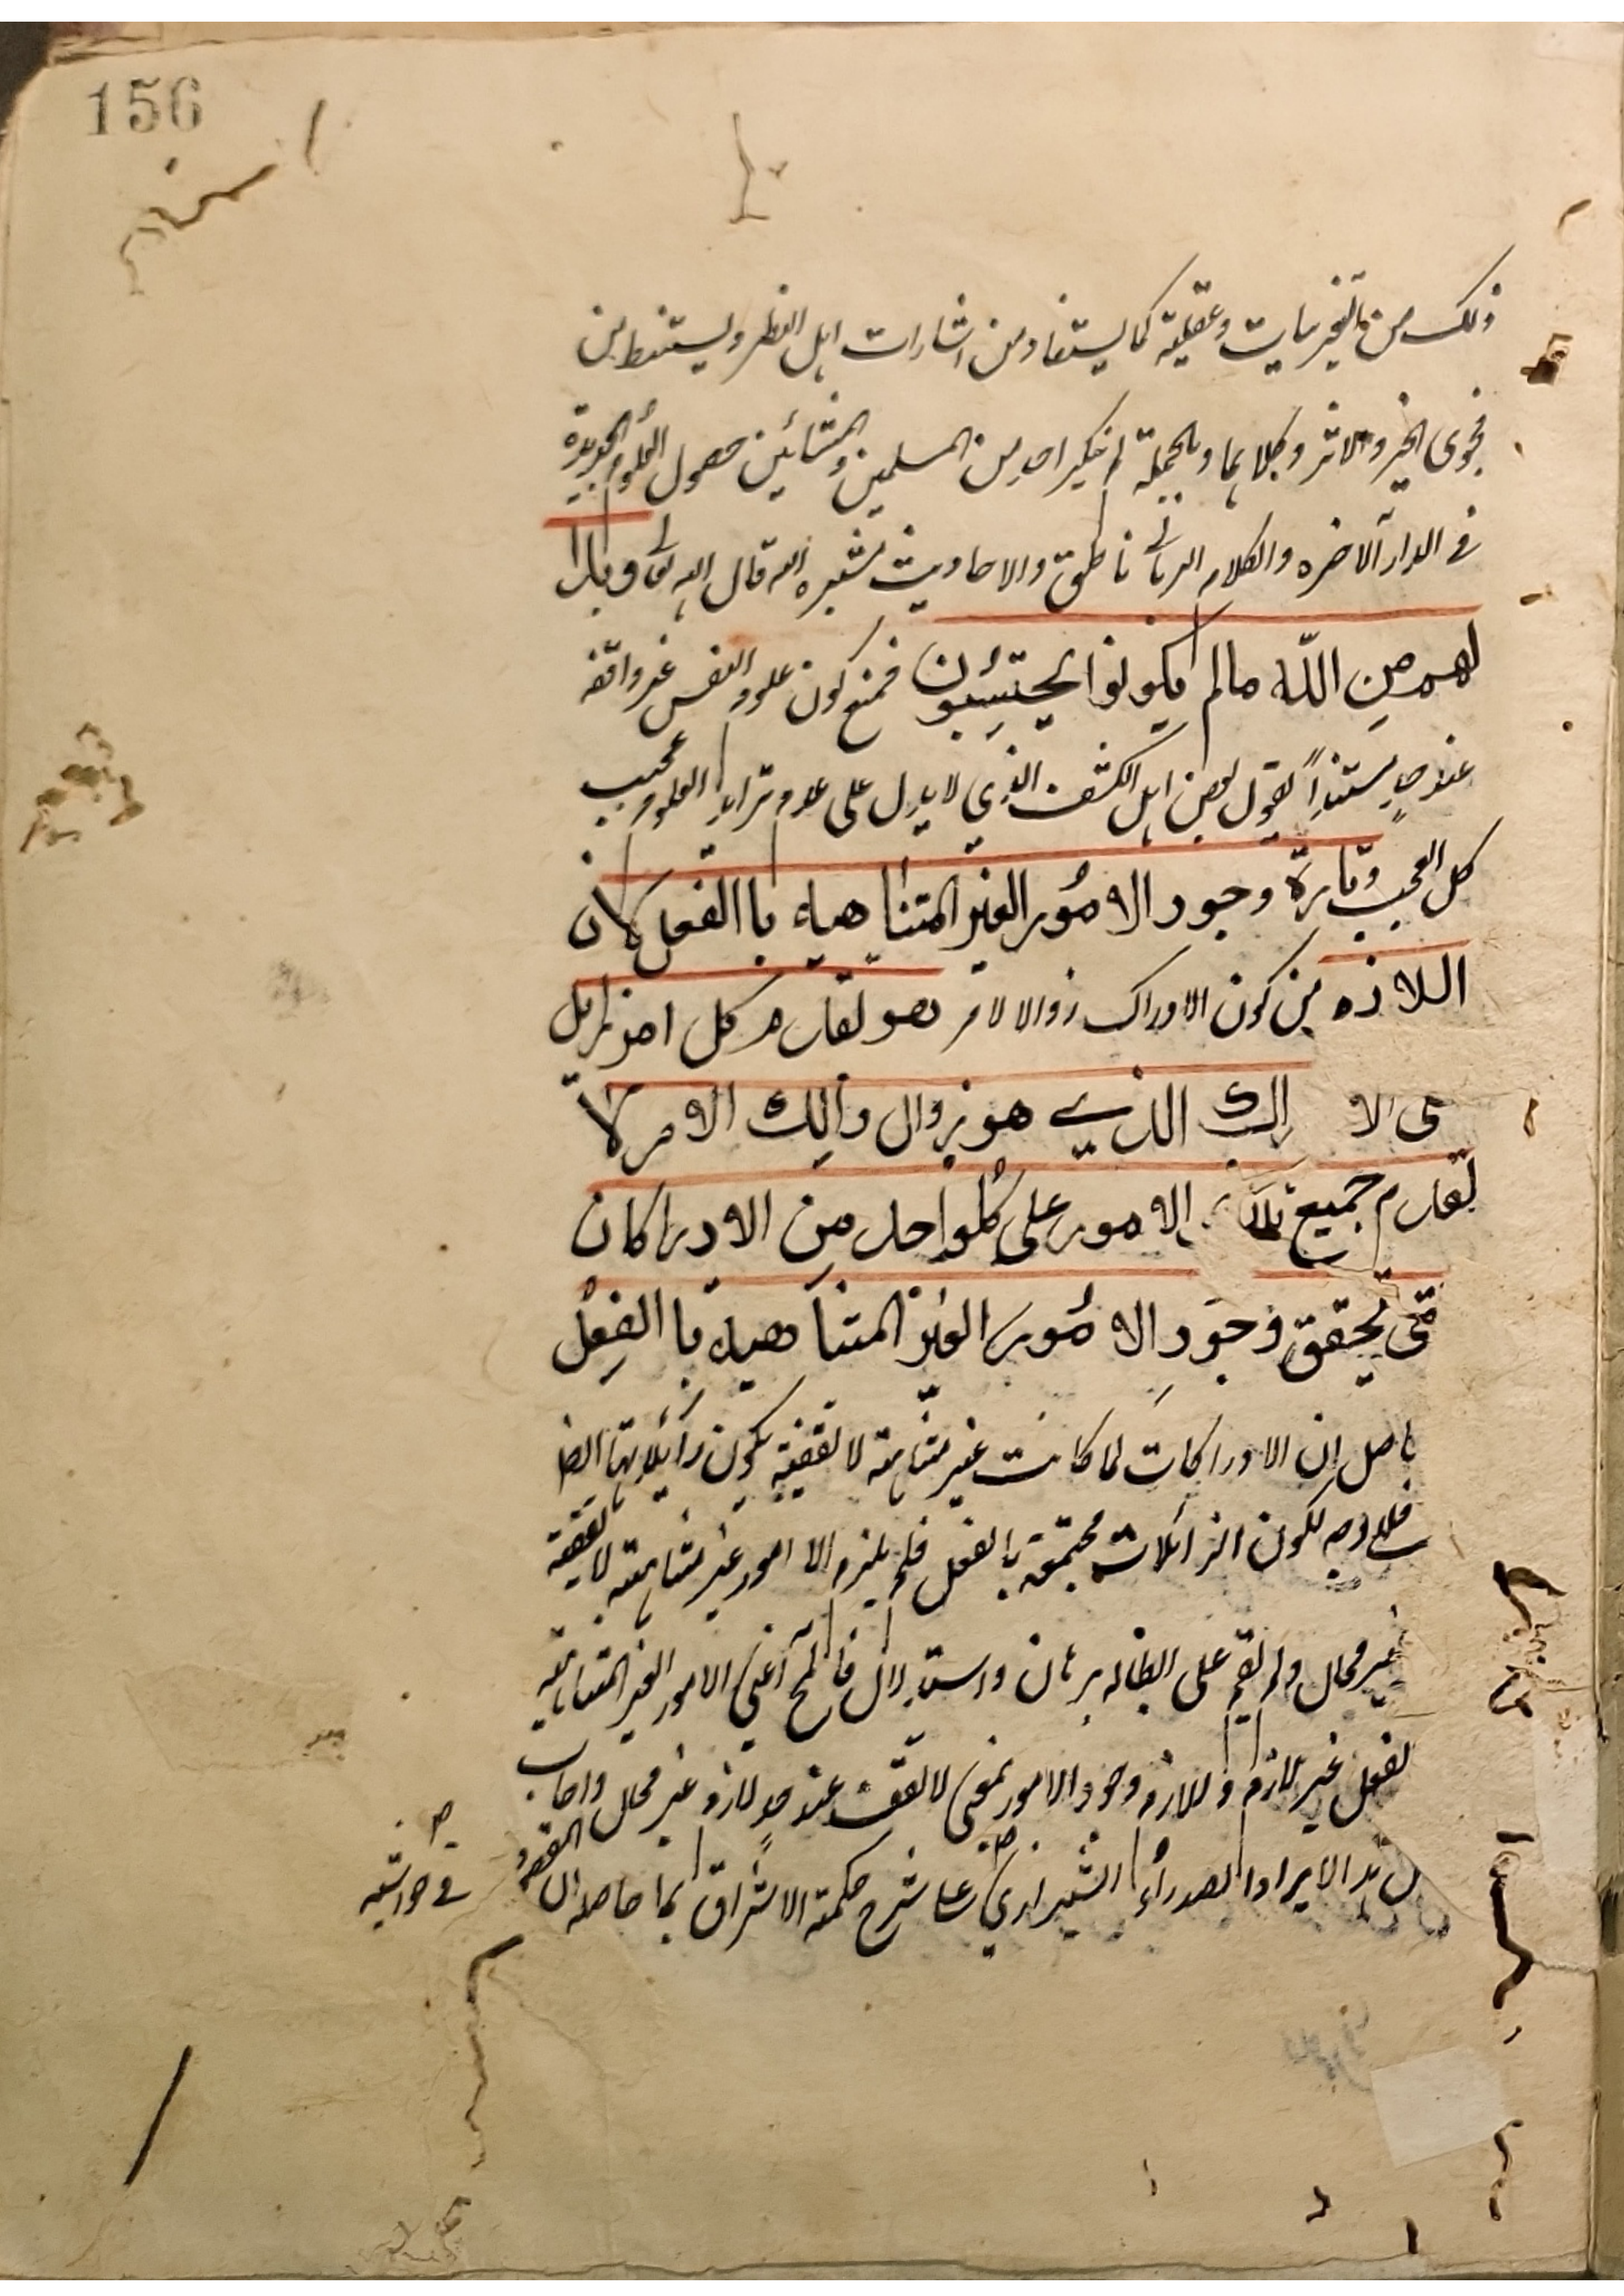 156
ذلك من التخيرسايت وعقلية كما يستفاد من اشارات اهل النظر ويستنبط من
فحوى الخبر والاثر وكلاهما وبالجملة لم ينكر احد من المسلمين والمشائين حصول العلوم الجديدة
فى الدار الآخره والكلام الربانى ناطق والاحاديث مشيره اليه قال الله تعالى وبدا
لهم من الله مالم يكونوا يحتسبون فمنع كون علوم النفس غير واقفه
عند حدٍ مستنداً بقول بعض اهل الكشف الذي لا يدل على عدم تزايد العلوم عجيب
كل العجب وتارة وجود الامُور الغير المتناهيه باالفعل كان
اللازم من كون الادراك زوالا لامر هو تقدم كل امر زايل
على الا راك الذي هو زوال ذالك الامر لا
تقدم جميع تلك الامور على كلواحد من الادراكات
حتى يتحقق وجود الامُور الغير المتناهيه باالفِعل
حاصل ان الادراكات لما كانت غير متناهية لا تقفية يكون زائلاتها ايضا
فلا وجه لكون الزائلات مجتمعة بالفعل فلم يلزم الا امور غير متناهية لا تقفية
غير محال ولم يقم على ابطاله برهان واستدلال فالمح اعنى الامور الغير المتناهية
لفعل غير لازم واللازم وجود الامور بمعنى لا تقف عند حدٍ لازم غير محال واجاب
هذا الايراد الصدراء الشيرازي على شرح حكمة الاشراق بما حاصله ان المقصود
فى حواشيه